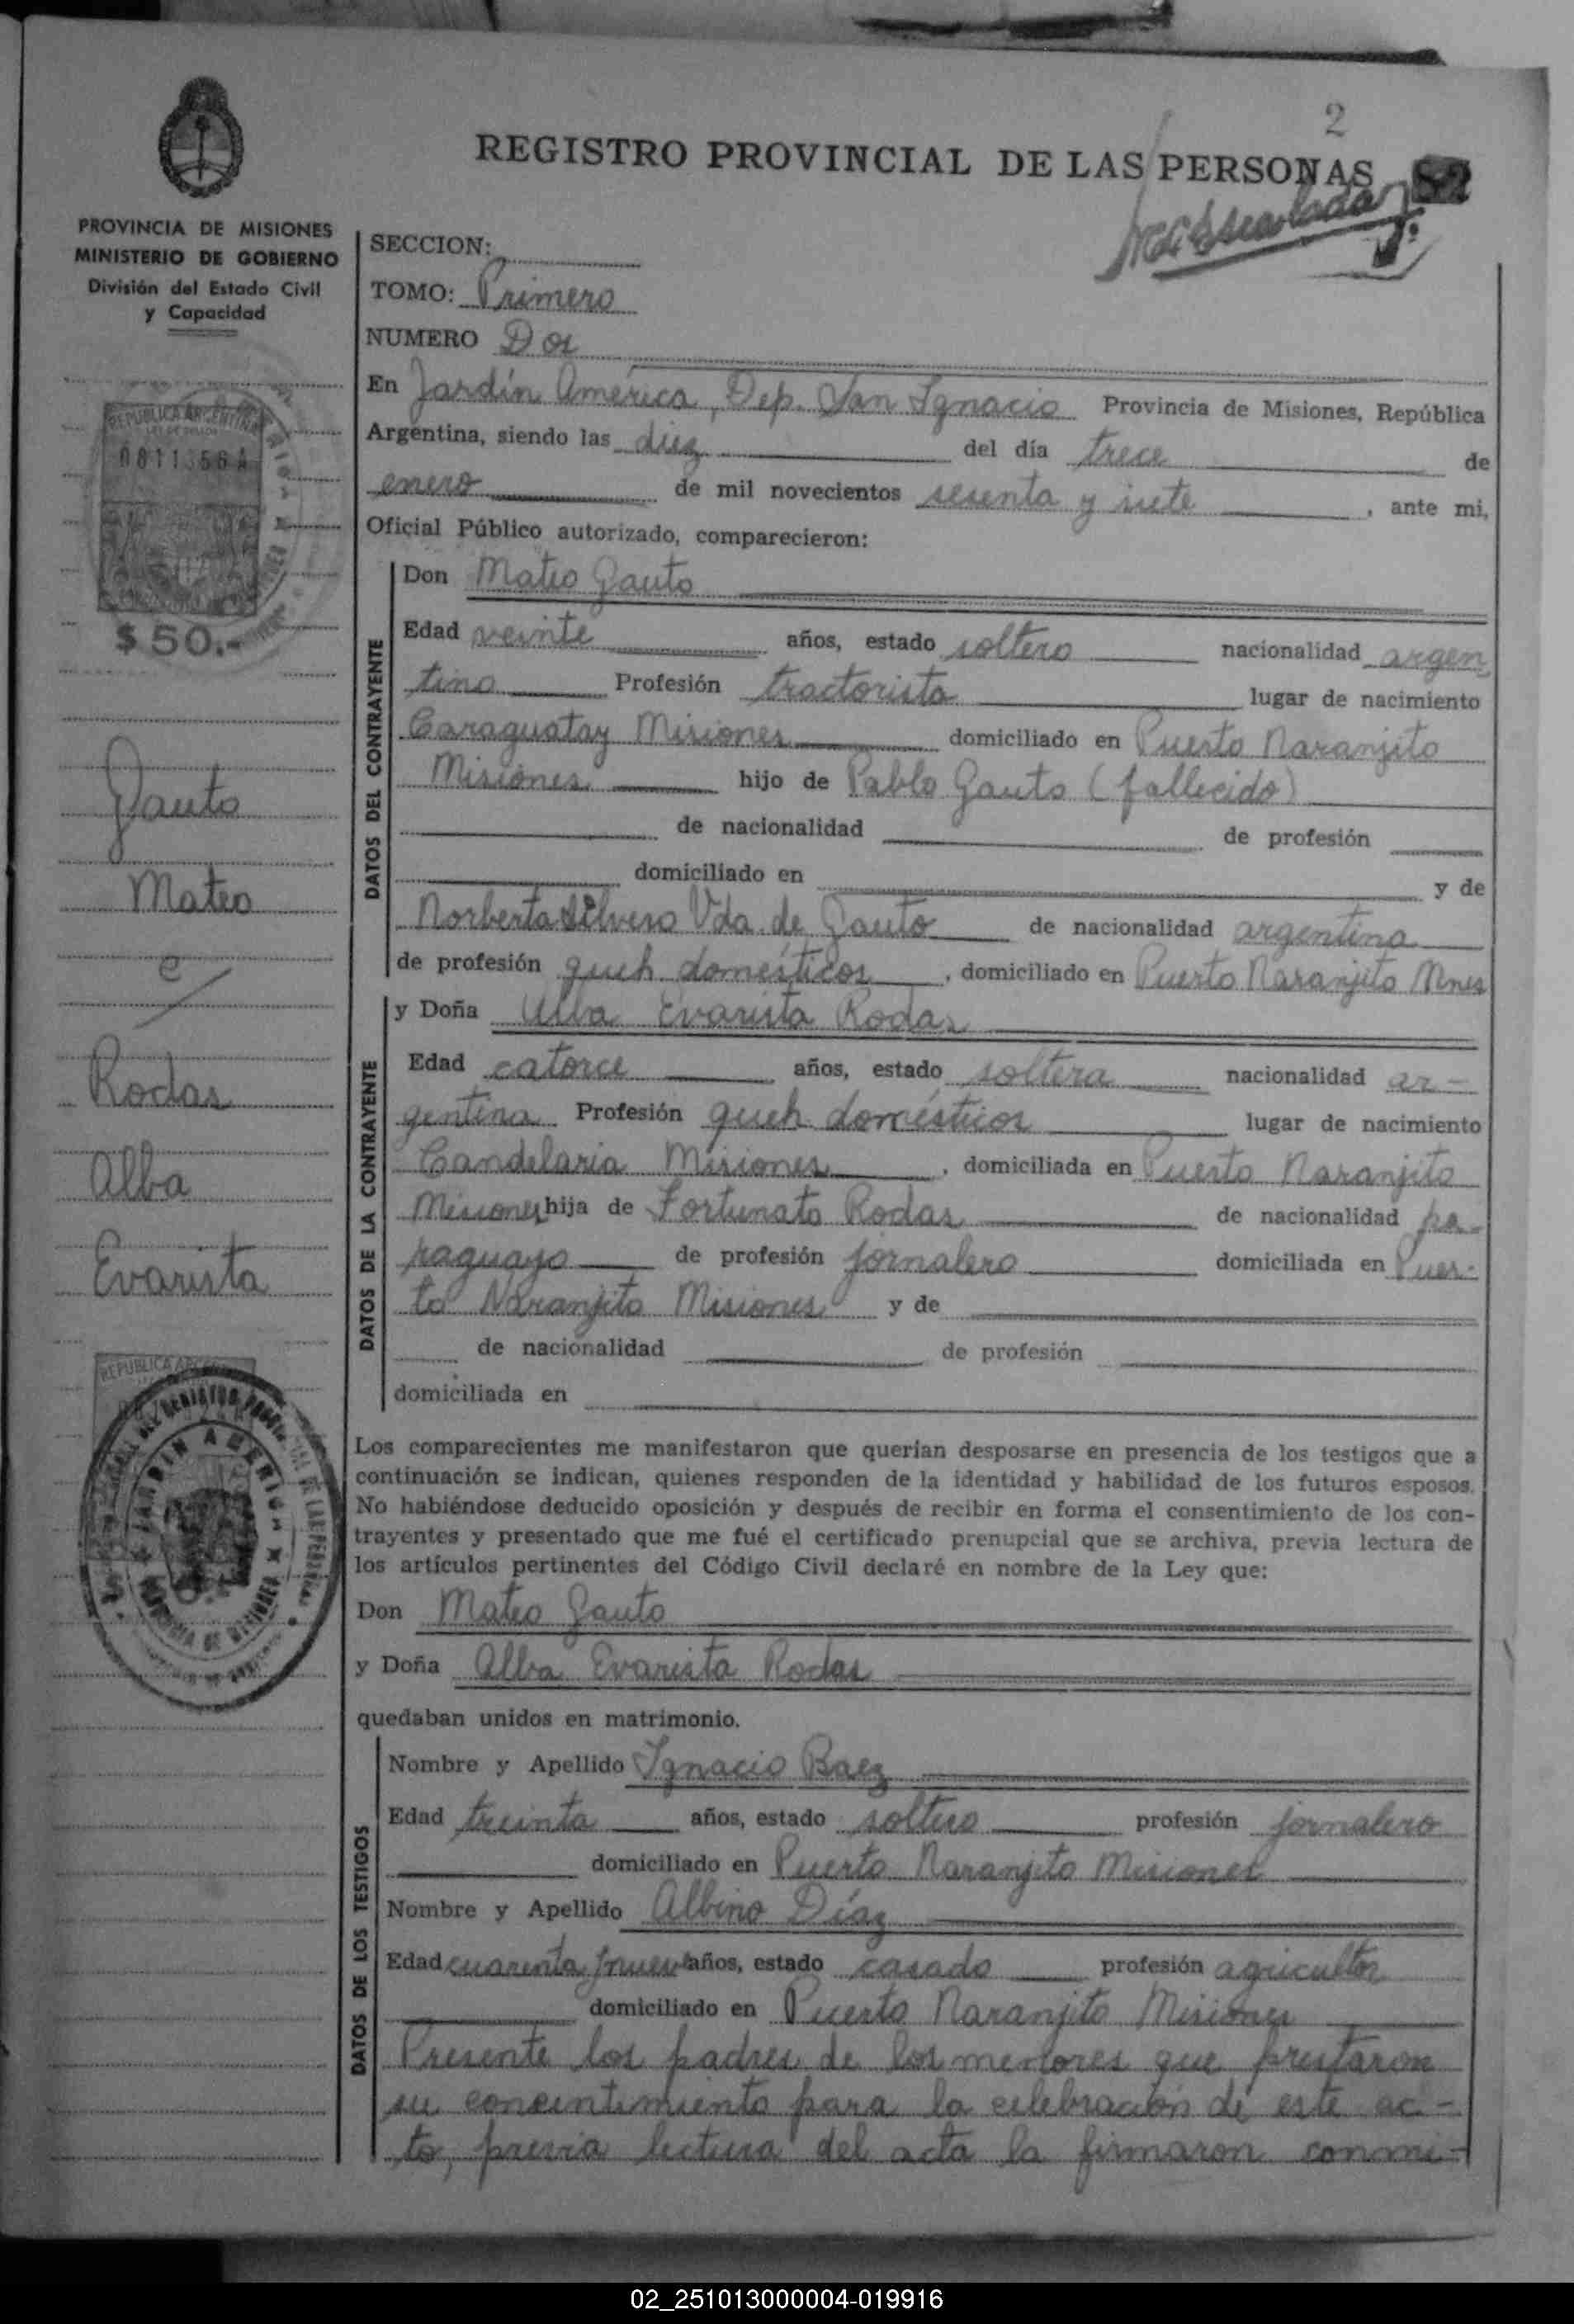 2
REGISTRO PROVINCIAL DE LAS PERSONAS
82
PROVINCIA DE MISIONES
MINISTERIO DE GOBIERNO
División del Estado Civil
y Capacidad
SECCION:
TOMO: Primero
NUMERO Dos
En Jardín América, Dep. San Ignacio Provincia de Misiones, República
Argentina, siendo las diez del día trece de
enero de mil novecientos sesenta y siete, ante mi,
Oficial Público autorizado, comparecieron:
REPUBLICA ARGENTINA
$ 50.-
Gauto
Mateo
c/
Rodas
Alba
Evarista
REPUBLICA
JARDIN AMERICA
DATOS DEL CONTRAYENTE
Don Mateo Gauto
Edad veinte años, estado soltero nacionalidad argen
tino Profesión tractorista lugar de nacimiento
Caraguatay Misiones domiciliado en Puerto Naranjito
Misiones hijo de Pablo Gauto (fallecido)
de nacionalidad de profesión
domiciliado en y de
Norberta Silvero Vda. de Gauto de nacionalidad argentina
de profesión queh. domésticos, domiciliado en Puerto Naranjito Mnes
DATOS DE LA CONTRAYENTE
y Doña Alba Evarista Rodas
Edad catorce años, estado soltera nacionalidad ar-
gentina Profesión queh. domésticos lugar de nacimiento
Candelaria Misiones, domiciliada en Puerto Naranjito
Misiones hija de Fortunato Rodas de nacionalidad pa-
raguayo de profesión jornalero domiciliada en Puer-
to Naranjito Misiones y de
de nacionalidad de profesión
domiciliada en
Los comparecientes me manifestaron que querían desposarse en presencia de los testigos que a
continuación se indican, quienes responden de la identidad y habilidad de los futuros esposos.
No habiéndose deducido oposición y después de recibir en forma el consentimiento de los con-
trayentes y presentado que me fué el certificado prenupcial que se archiva, previa lectura de
los artículos pertinentes del Código Civil declaré en nombre de la Ley que:
Don Mateo Gauto
y Doña Alba Evarista Rodas
quedaban unidos en matrimonio.
DATOS DE LOS TESTIGOS
Nombre y Apellido Ignacio Baez
Edad treinta años, estado soltero profesión jornalero
domiciliado en Puerto Naranjito Misiones
Nombre y Apellido Albino Díaz
Edad cuarenta años, estado casado profesión agricultor
domiciliado en Puerto Naranjito Misiones
Presente los padres de los menores que prestaron
su concintimiento para la celebración de este ac-
to, previa lectura del acta la firmaron conmi-
02_251013000004-019916